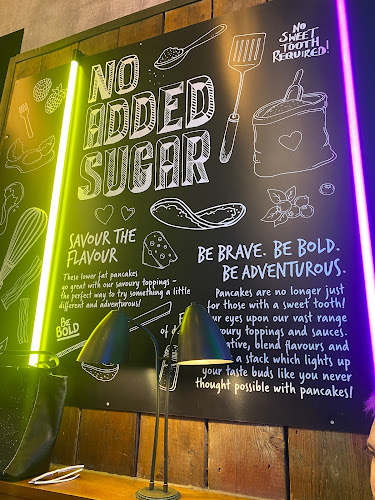 NO
SWEET
TOOTH
REQUIRED!
NO
ADDED
SUGAR
SAVOUR THE
FLAVOUR
These lower fat pancakes
go great with our savoury toppings
the perfect way to try something a little
different and adventurous!
BE
BOLD
BE BRAVE. BE BOLD.
BE ADVENTUROUS.
Pancakes are no longer just
for those with a sweet tooth!
our eyes upon our vast range
of
toppings and sauces.
blend flavours and
a stack which lights up
your taste buds like you never
thought possible with pancakes!